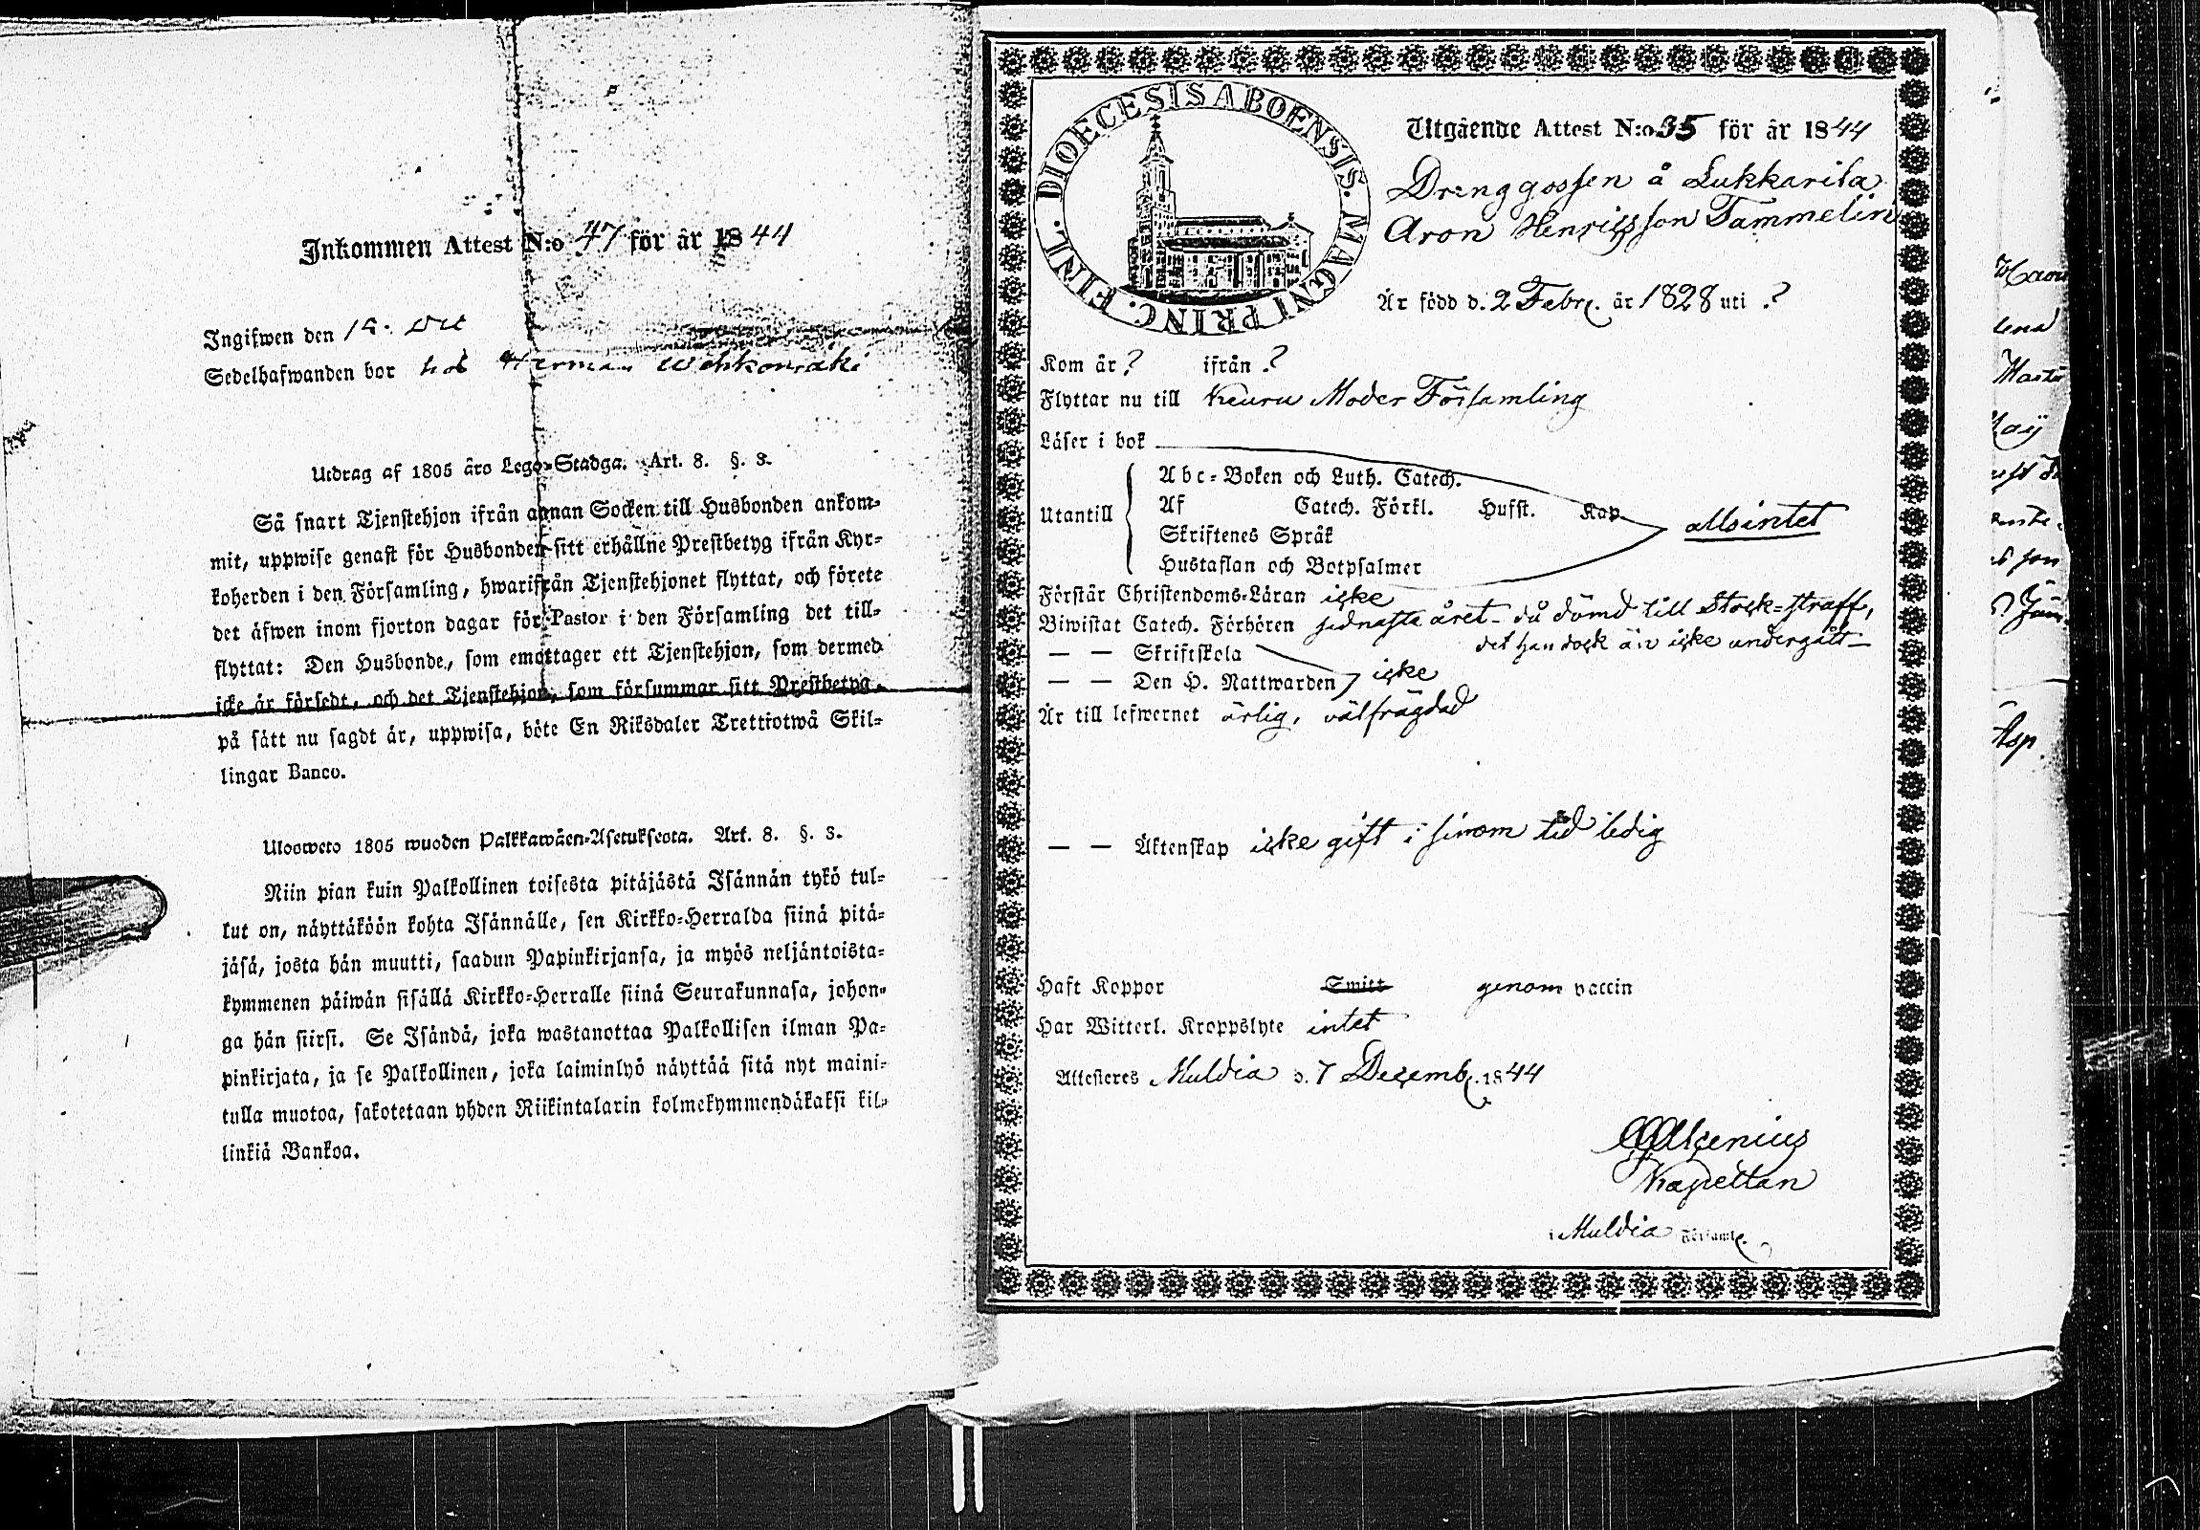 Inkommen Attest N:o 47 för år 1844
Ingifwen den
Sedelhafwanden bor hos Herman
Utdrag af 1805 års Lego-Stadga. Art. 8. §. 3.
Så snart Tjenstehjon ifrån annan Socken till Husbonden ankom-
mit, uppwise genast för Husbonden sitt erhållne Prestbetyg ifrån Kyr-
koherden i den Församling, hwarifrån Tjenstehjonet flyttat, och förete
det äfwen inom fjorton dagar för Pastor i den Församling det till-
flyttat: Den Husbonde, som emottager ett Tjenstehjon, som dermed
icke är försedt, och det Tjenstehjon, som försummar sitt Prestbetyg,
på sätt nu sagdt är, uppwisa, böte En Riksdaler Trettiotwå Skil-
lingar Banco.
Ulosweto 1805 wuoden Palkkawäen-Asetuksesta. Art. 8. §. 3.
Niin pian kuin Palkollinen toisesta pitäjästä Isännän tykö tul-
lut on, näyttäköön kohta Isännälle, sen Kirkko-Herralda siinä pitä-
jäsä, josta hän muutti, saadun Papinkirjansa, ja myös neljäntoista-
kymmenen päiwän sisällä Kirkko-Herralle siinä Seurakunnasa, johon-
ga hän siirsi. Se Isändä, joka wastanottaa Palkollisen ilman Pa-
pinkirjata, ja se Palkollinen, joka laiminlyö näyttää sitä nyt maini-
tulla muotoa, sakotetaan yhden Riikintalarin kolmekymmendäkaksi kil-
linkiä Bankoa.
DIOECESIS ABOENSIS. MAGNI PRINC. FINL.
Utgående Attest N:o 35 för år 1844
Drenggossen å Lukkarila
Aron Henricsson Tammelin
Är född d. 2 Febr. år 1828 uti ?
Kom år ? ifrån ?
Flyttar nu till Keuru Moder Församling
Läser i bok
Utantill
Abc-Boken och Luth. Catech.
Af Catech. Förkl. Hufst. Kap.
Skriftenes Språk
Hustaflan och Botpsalmer
allsintet
Förstår Christendoms-Läran icke
Biwistat Catech. Förhören sednaste året - då dömd till Stock-straff,
det han dock än icke undergått -
— — Skriftskola
— — Den H. Nattwarden icke
Är till lefwernet ärlig, välfrägdad
— — Äktenskap icke gift i sinom tid ledig
Haft Koppor Smitt genom vaccin
Har Witterl. Kroppslyte intet
Attesteres Muldia d. 7 Decemb. 1844
Kapellan
i Muldia Församl.